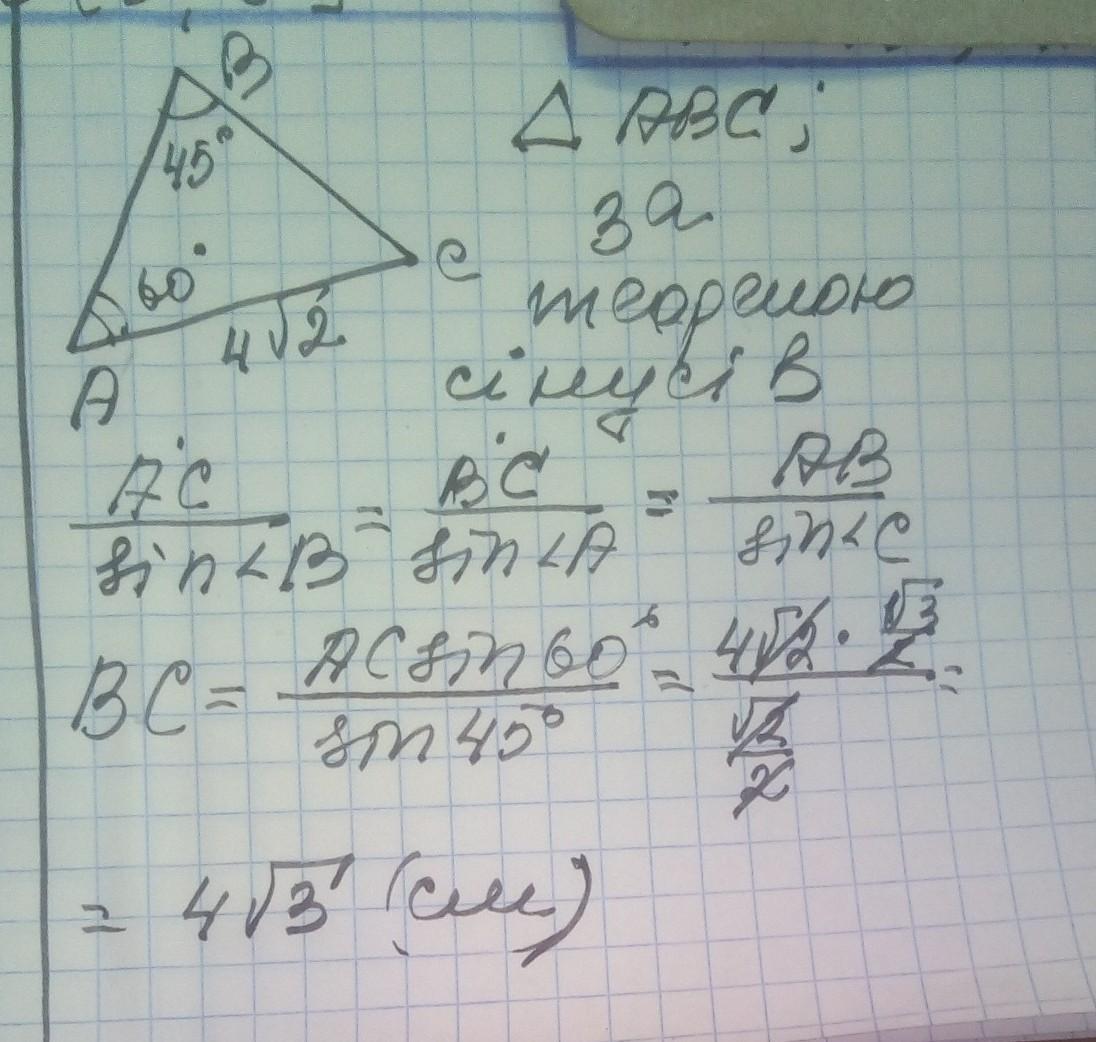 B
45°
60°
C
4√2
A
△ ABC;
за
теоремою
сінусів
AC/sin<B = BC/sin<A = AB/sin<C
BC = AC sin 60°/sin 45° = (4√2 · √3/2)/(√2/2) =
= 4√3 (см)